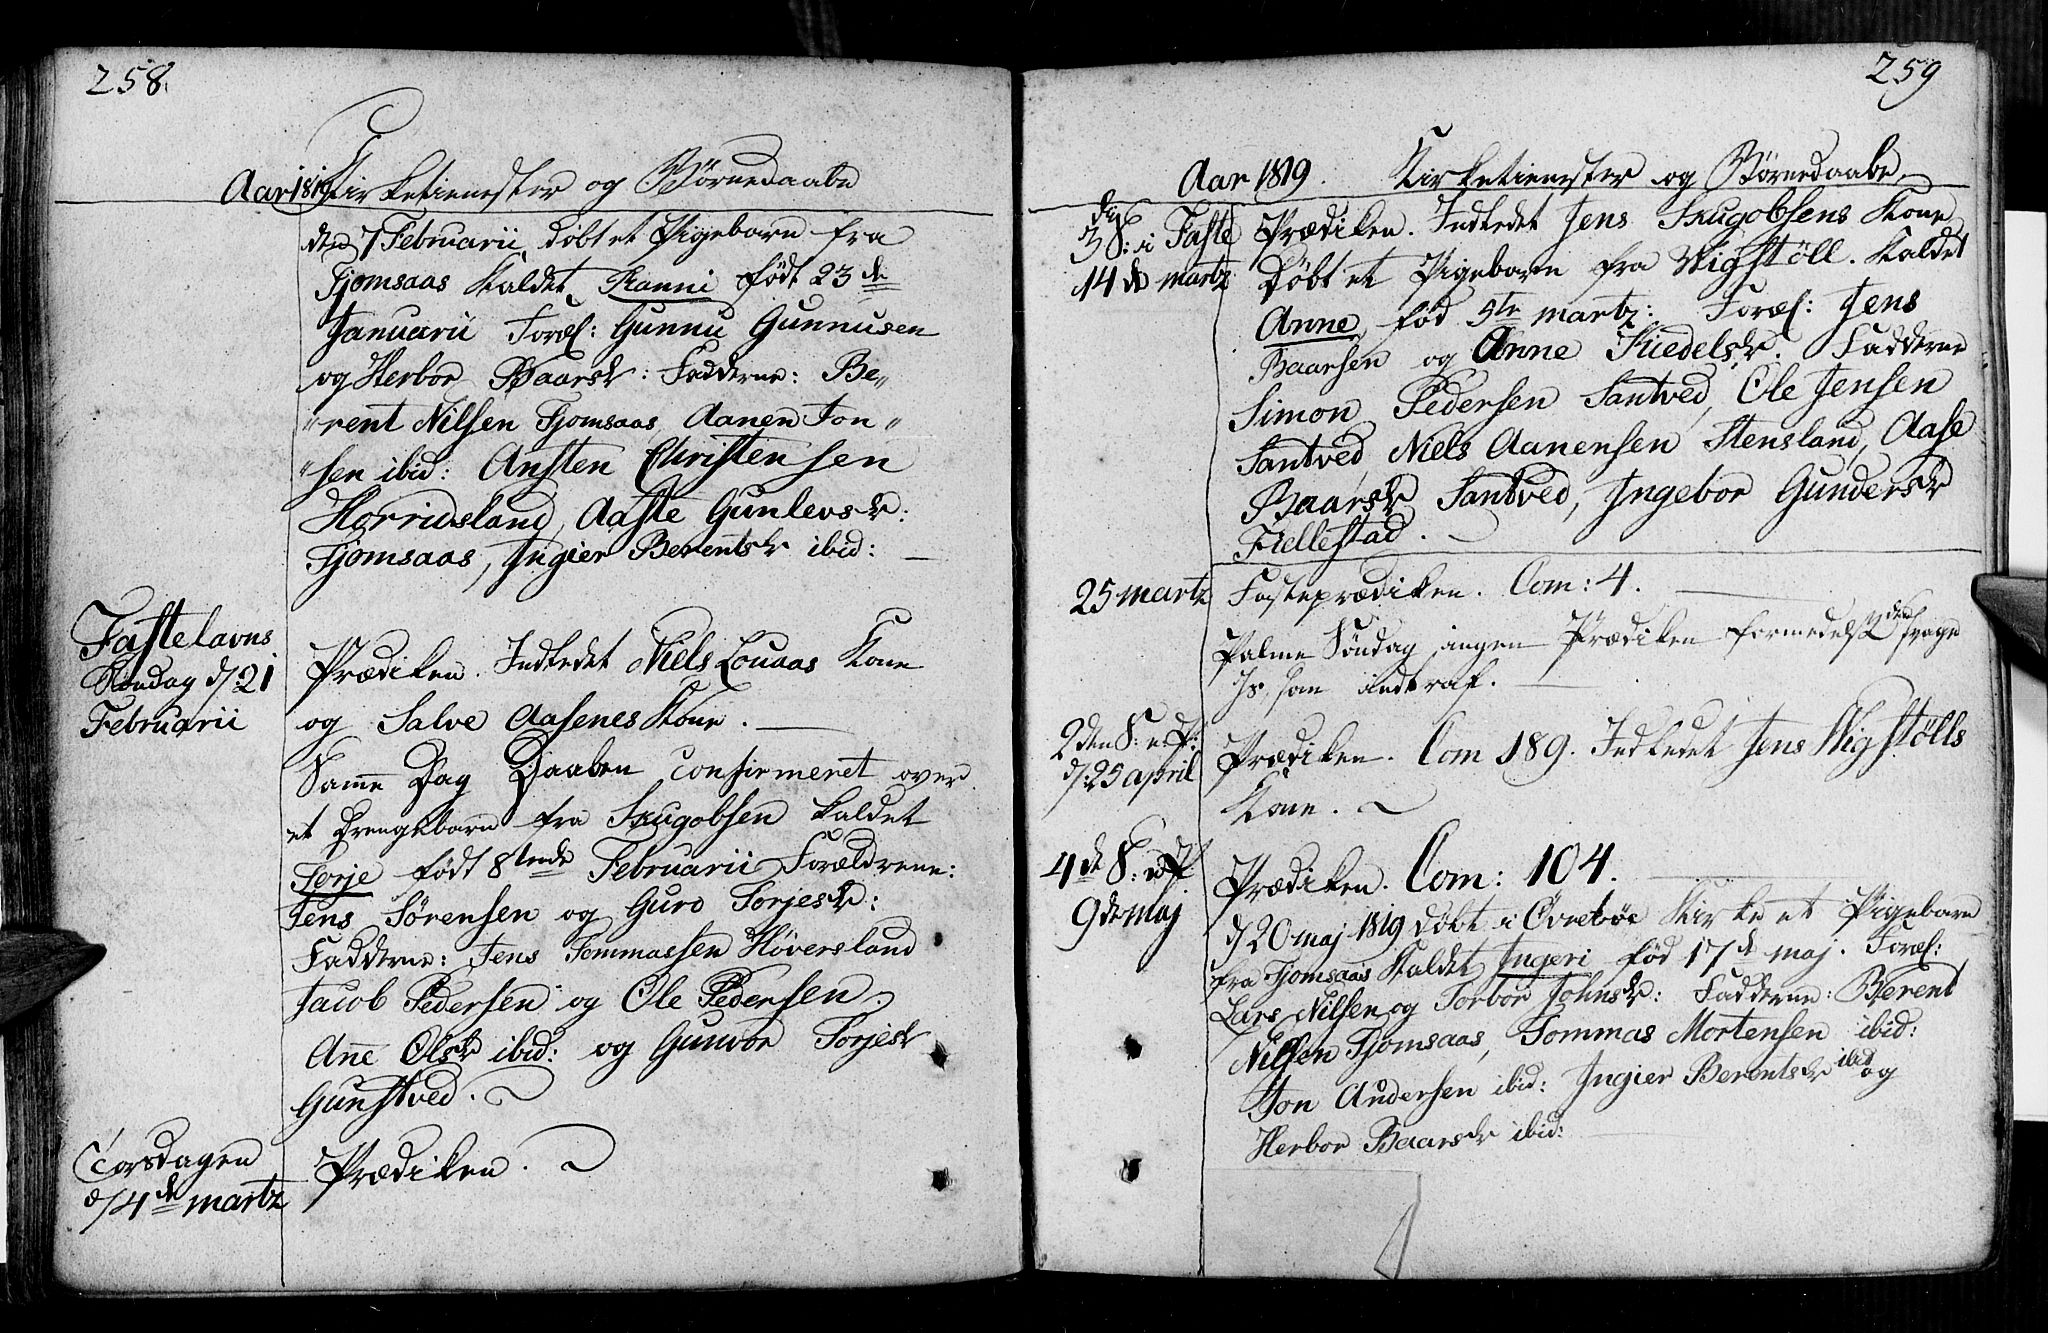 258.
Aar 1819 Kirketienester og Børnedaabe
den 7 Februarii døbt et Pigebarn fra
Tjomsaas kaldet Ranni født 23 de
Januarii Foræl: Gunnu Gunnusen
og Herbor Baarsdr: Fadderne: Be„
„rent Nilsen Tjomsaas, Aanen Jon„
„sen ibid: Ansten Christensen
Horrisland, Aaste Gunlevsdr:
Tjomsaas, Ingier Berentsdr ibid:
Fastelavns
Søndag d/21
Februarii
Prædiken. Indledet Niels Louaas Kone
og Salve Aasenes Kone.
Samme Dag Daaben confirmeret over
et Drengebarn fra Skugobsen kaldet
Terje født 8tende Februarii Forældrene:
Jens Sørensen og Guro Torjesdr:
Fadderne: Jens Tommassen Høversland
Jacob Pedersen og Ole Pedersen
Anne Olsdr ibid: og Gunvor Torjesdr
Gunstved.
Torsdagen
d/4 de martz
Prædiken.
259
Aar 1819. Kirketienester og Børnedaabe
3 S: i Faste
14 de martz
Prædiken. Indledet Jens Skugobsens Kone
Døbt et Pigebarn fra Wigstøll. Kaldet
Anne, fød 5te martz: Foræl: Jens
Baarsen og Anne Kiedelsdr. Fadderne
Simon Pedersen Santved, Ole Jensen
Santved, Niels Aanensen Stensland, Aase
Baarsdr Santved, Ingebor Gundersdr
Fiellestad.
25 martz
Fasteprædiken. Com: 4.
Palme Søndag ingen Prædiken formedelst den svage
Is, som indtraf.
2den S: e. P:
d/25 april
Prædiken. Com 189. Indledet Jens Wigstølls
Kone.
4 de S: e. P.
9 de Maj
Prædiken. Com: 104.
d/20 maj 1819 døbt i Øvrebøe Kirke et Pigebarn
fra Tjomsaas kaldet Ingeri fød 17 d maj. Foræl:
Lars Nilsen og Torbor Johnsdr: Fadderne: Berent
Nilsen Tjomsaas, Tommas Mortensen ibid:
Jon Andersen ibid: Ingier Berentsdr ibid og
Herbor Baarsdr ibid: